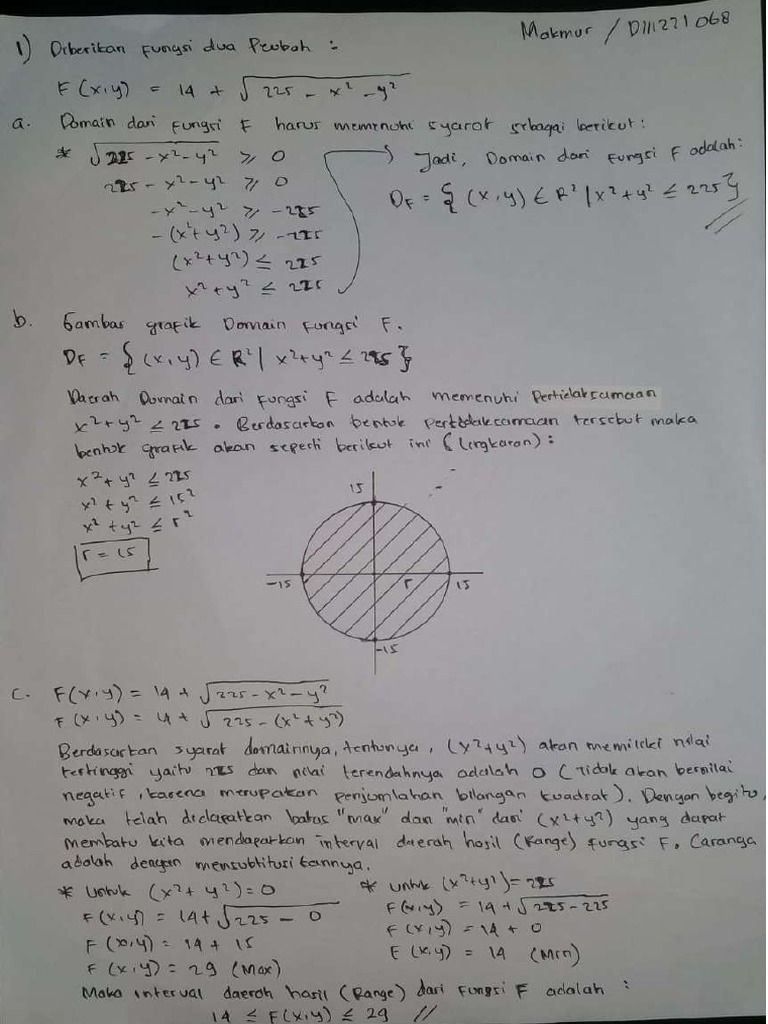 Makmur / D111221068
1) Diberikan fungsi dua Peubah :
F(x,y) = 14 + √(225 - x² - y²)
a. Domain dari fungsi F harus memenuhi syarat sebagai berikut:
* √(225 - x² - y²) ≥ 0
225 - x² - y² ≥ 0
-x² - y² ≥ -225
-(x² + y²) ≥ -225
(x² + y²) ≤ 225
x² + y² ≤ 225
Jadi, Domain dari fungsi F adalah:
DF = {(x,y) ∈ R² | x² + y² ≤ 225}
b. Gambar grafik Domain fungsi F.
DF = {(x,y) ∈ R² | x² + y² ≤ 225}
Daerah Domain dari fungsi F adalah memenuhi Pertidaksamaan
x² + y² ≤ 225. Berdasarkan bentuk pertidaksamaan tersebut maka
bentuk grafik akan seperti berikut ini (lingkaran) :
x² + y² ≤ 225
x² + y² ≤ 15²
x² + y² ≤ r²
r = 15
15
-15 r 15
-15
c. F(x,y) = 14 + √(225 - x² - y²)
F(x,y) = 14 + √(225 - (x² + y²))
Berdasarkan syarat domainnya, tentunya, (x² + y²) akan memiliki nilai
tertinggi yaitu 225 dan nilai terendahnya adalah 0 (Tidak akan bernilai
negatif, karena merupakan penjumlahan bilangan kuadrat). Dengan begitu,
maka telah didapatkan batas "max" dan "min" dari (x² + y²) yang dapat
membatu kita mendapatkan interval daerah hasil (Range) fungsi F. Caranga
adalah dengan mensubtitusikannya.
* Untuk (x² + y²) = 0
F(x,y) = 14 + √(225 - 0)
F(x,y) = 14 + 15
F(x,y) = 29 (Max)
* Untuk (x² + y²) = 225
F(x,y) = 14 + √(225 - 225)
F(x,y) = 14 + 0
F(x,y) = 14 (Min)
Maka interval daerah hasil (Range) dari fungsi F adalah :
14 ≤ F(x,y) ≤ 29 //